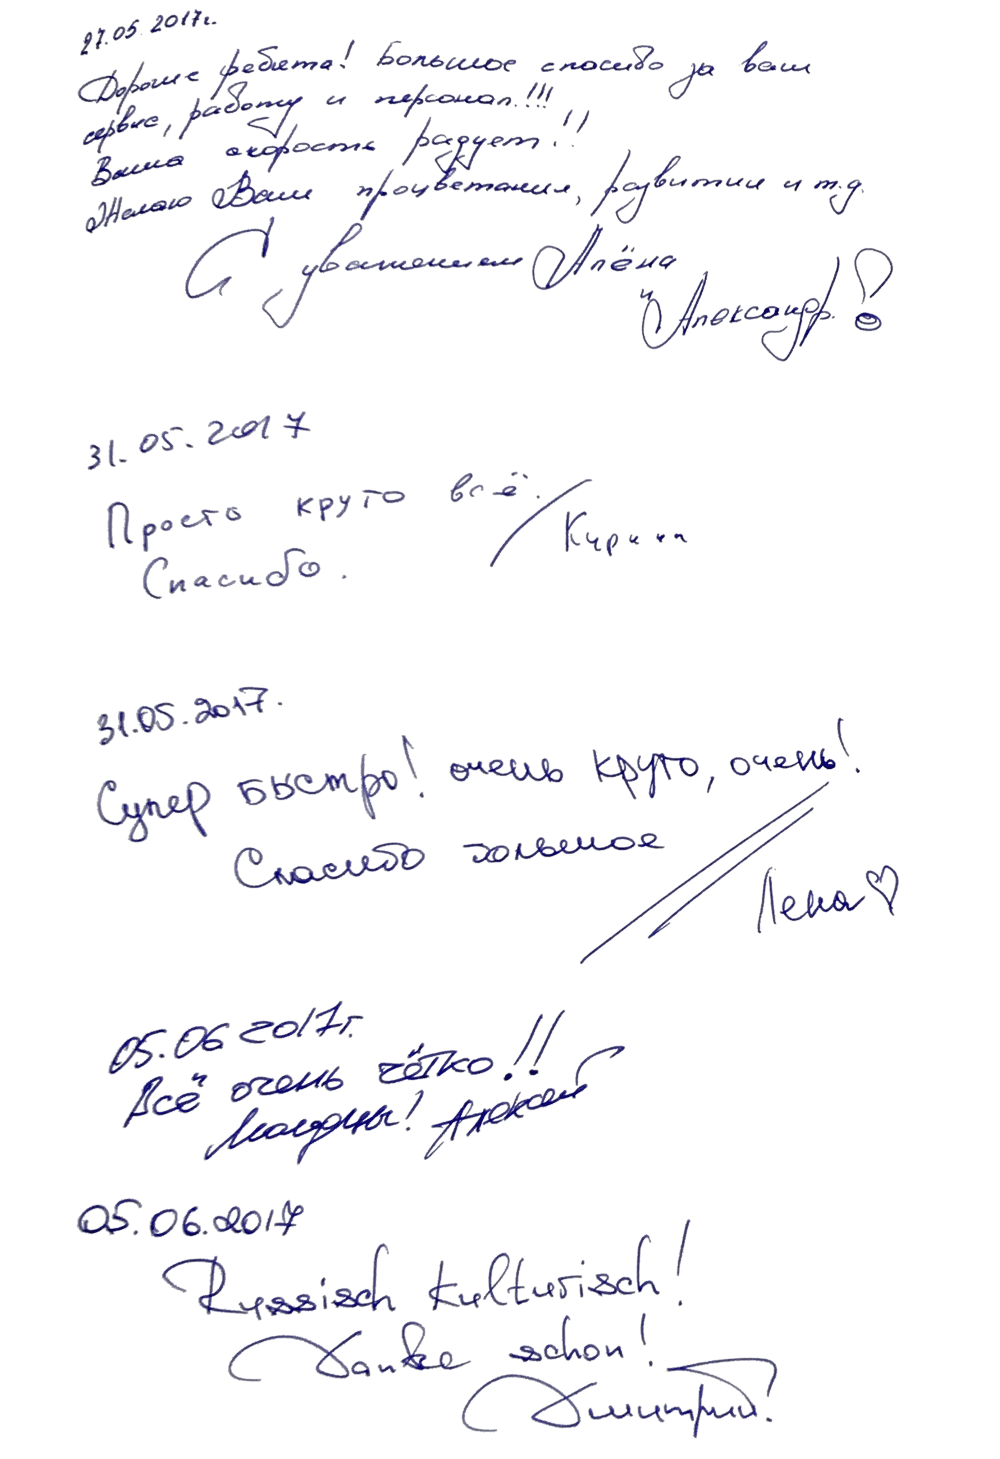 27.05.2017г.
Дорогие ребята! Большое спасибо за ваш
сервис, работу и персонал!!!
Ваша скорость радует!!
Желаю Вам процветания, развития и т.д.
С уважением Алёна
и Александр!
31.05.2017
Просто круто всё.
Карина
Спасибо.
31.05.2017.
Супер быстро! очень круто, очень!
Спасибо большое
Лена♡
05.06 2017г.
Всё очень чётко!!
Молодцы! Алексей
05.06.2017
Russisch kulturisch!
Danke schon!
Дмитрий!